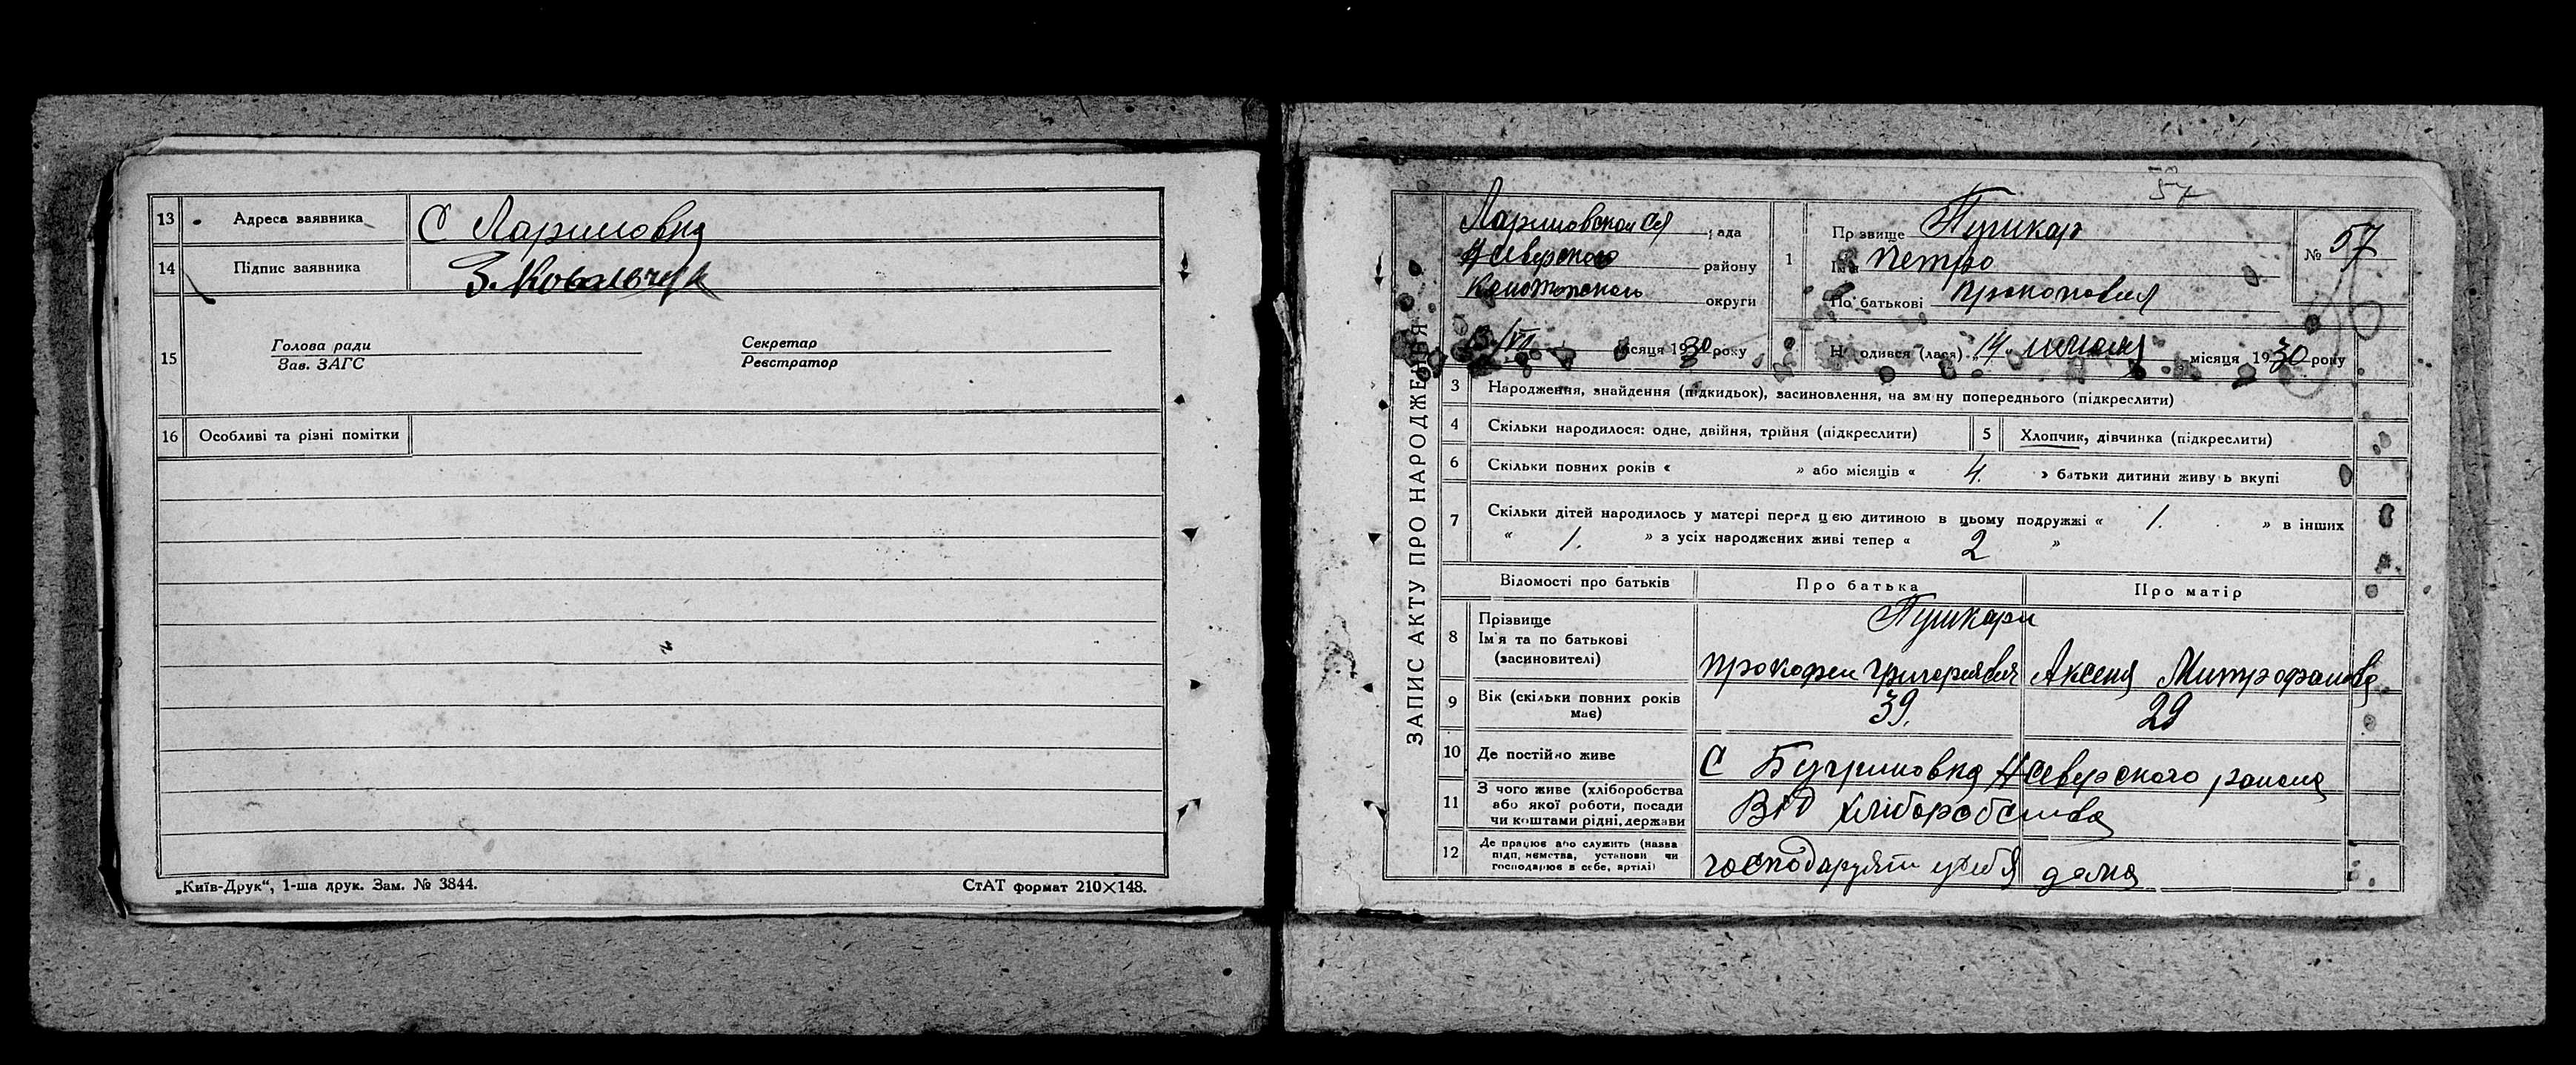 13 Адреса заявника С Лариновка
14 Підпис заявника З. Ковальчук
15
Голова ради
Зав. ЗАГС
Секретар
Реєстратор
16 Особливі та різні помітки
„Київ-Друк“, 1-ша друк. Зам. № 3844.
СтАТ формат 210×148.
57
ЗАПИС АКТУ ПРО НАРОДЖЕННЯ
рада
НСеверского району
Конотопской округи
місяця 1930 року
1 Прізвище Пушкар
Ім'я Петро
По батькові
№ 57
Народився (лася) 14 місяця 1930 року
3 Народження, знайдення (підкидьок), засиновлення, на зміну попереднього (підкреслити)
4 Скільки народилося: одне, двійня, трійня (підкреслити)
5 Хлопчик, дівчинка (підкреслити)
6 Скільки повних років « » або місяців « 4. » батьки дитини живуть вкупі
7 Скільки дітей народилось у матері перед цією дитиною в цьому подружжі « 1. » в інших
« 1. » з усіх народжених живі тепер « 2 »
Відомості про батьків Про батька Про матір
8 Прізвище
Ім'я та по батькові
(засиновителі)
Пушкари
Прокофий Григориевич Аксеня Митрофановна
9 Вік (скільки повних років має) 39. 29
10 Де постійно живе С НСеверского района
11 З чого живе (хліборобства
або якої роботи, посади
чи коштами рідні, держави
Від хліборобства
12 Де працює або служить (назва
підприємства, установи чи
господарює в себе, артілі)
господарують у себя дома